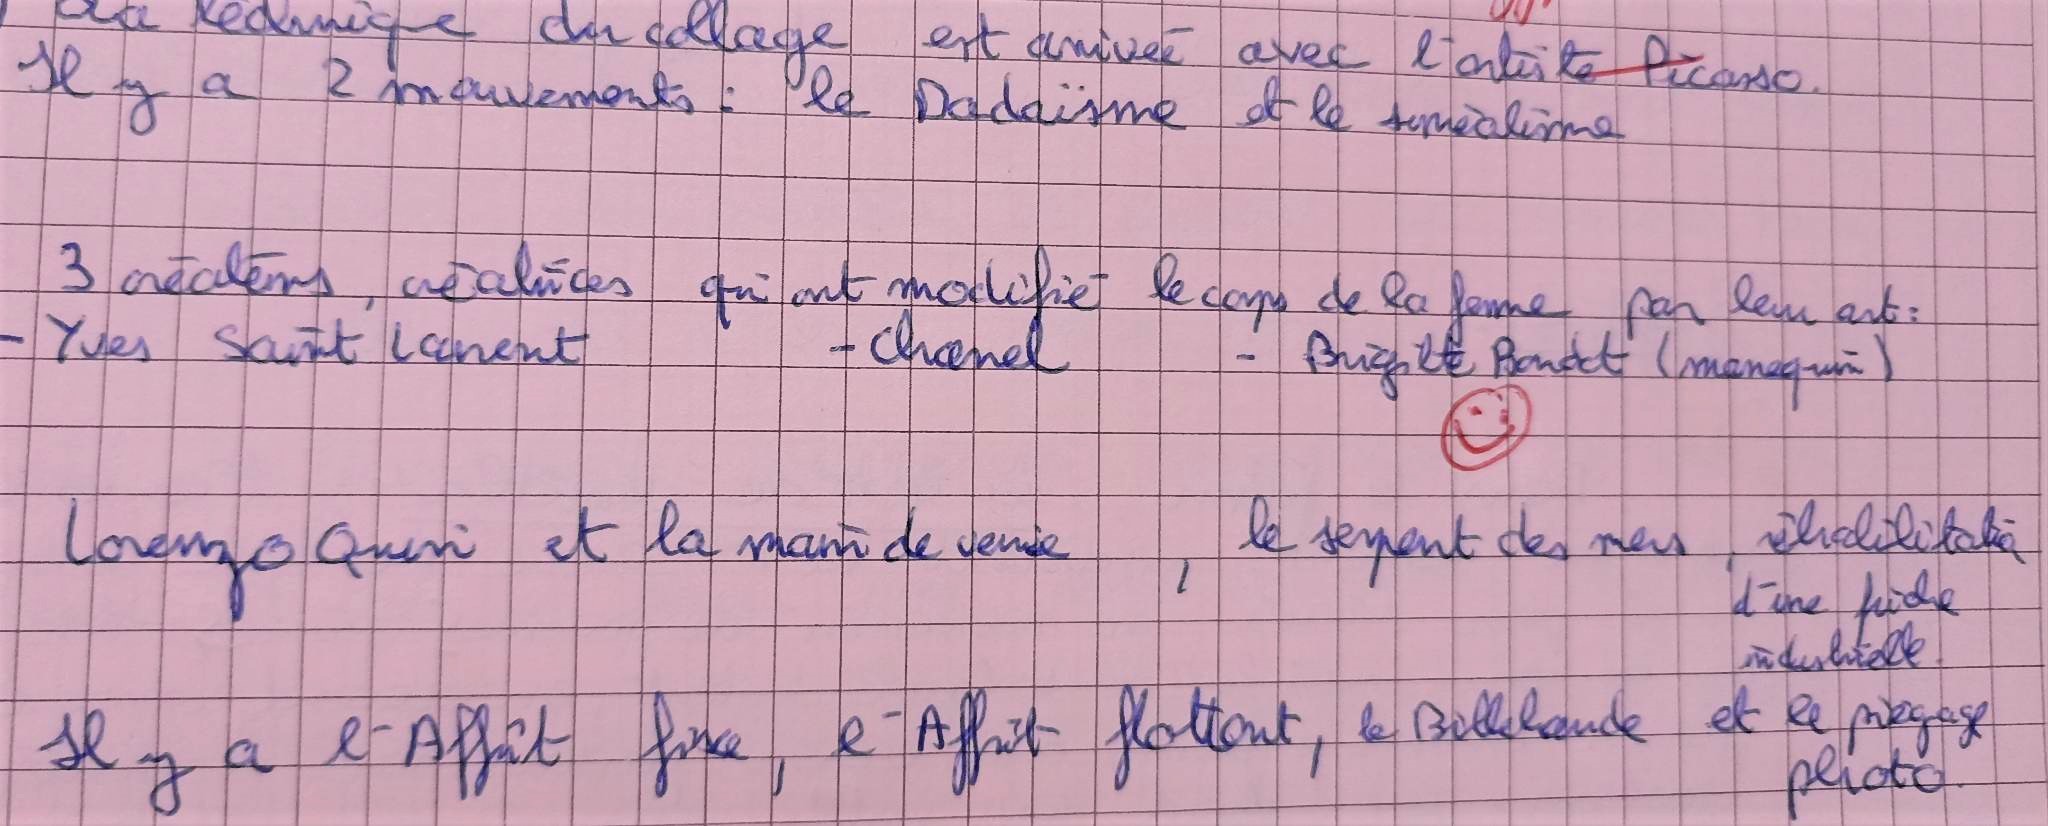 La technique du collage est arrivée avec l'artiste Picasso.
Il y a 2 mouvements : le Dadaïsme et le surréalisme
3 créateurs, créatrices qui ont modifié le corps de la femme par leur art :
- Yves Saint Laurent - Chanel - Brigitte Bardot (manequin)
Lorenzo Quin et la main de venise, le serpent des mers, réhabilitation
d'une friche
industrielle
Il y a l'Affût fixe, l'Affût flottant, la Billebaude et le piégage
photo.